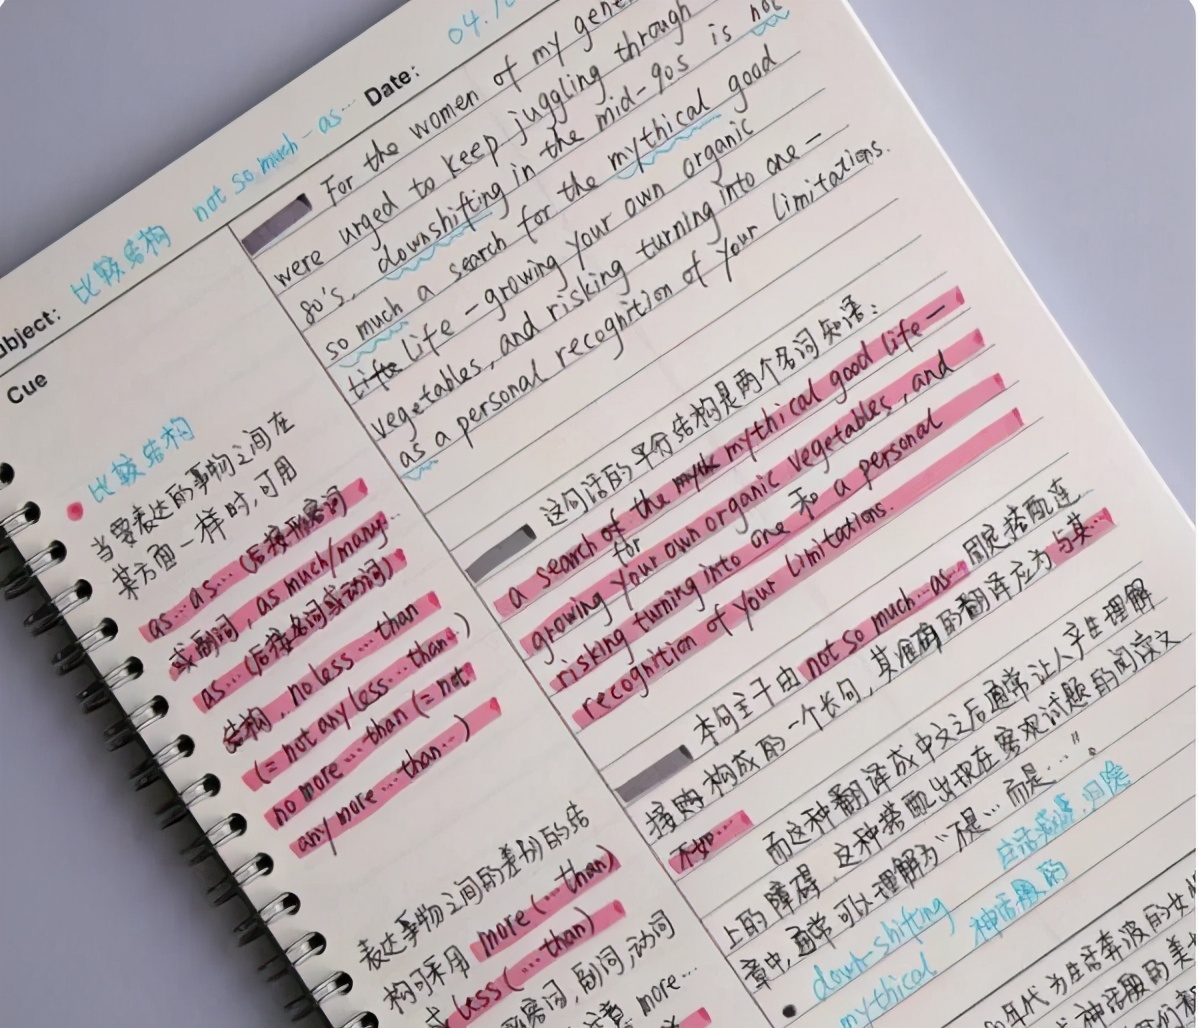 04.
Date:
比较结构 not so much - as...
bject:
Cue
For the women of my gene
were urged to keep juggling through
80's, downshifting in the mid-90s is not
so much a search for the mythical good
life - growing your own organic
vegetables, and risking turning into one -
as a personal recognition of your limitations.
比较结构
当要表达的事物之间在
某方面一样时,可用
as...as...(后接形容词
或副词, as much/many...
as...(后接名词或动词)
结构, no less...than
(= not any less...than..)
no more...than (= not
any more...than...)
表达事物之间的差别的结
构可采用 more(...than)
或 less(...than)
形容词,副词,动词
more...
这句话的平行结构是两个名词短语:
a search of the mythical good life -
for
growing your own organic vegetables, and
risking turning into one 和 a personal
recognition of your limitations.
本句主干由 not so much...as... 固定搭配连
接构成的一个长句, 其准确的翻译应为与其...
不如...
而这种翻译成中文之后通常让人产生理解
上的障碍, 这种搭配出现在客观试题的阅读文
章中,通常可以理解为"不是...而是..."。
down-shifting 生活 归隐
mythical 神话般的
年代为生活奔波的女
神话般的美